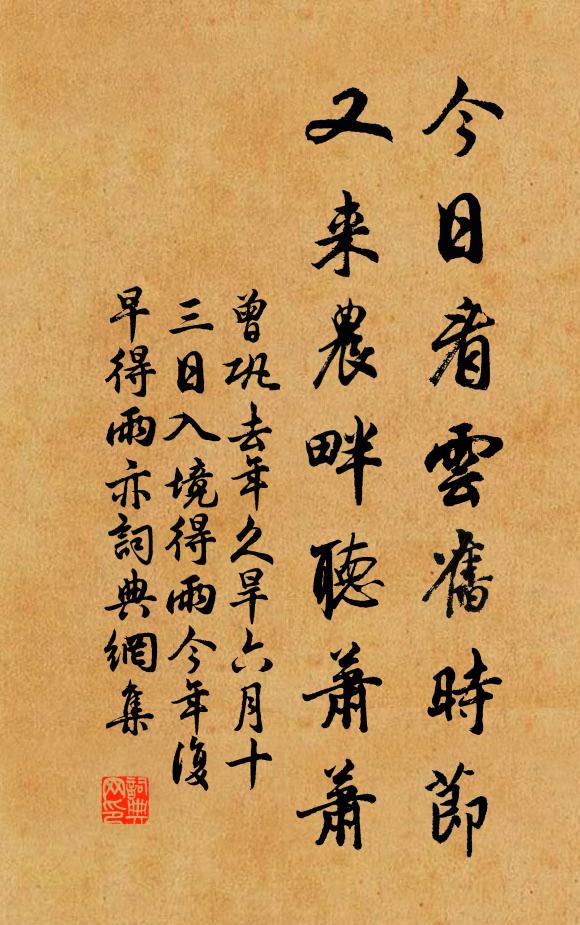 今日看雲舊時節
又来農畔聽蕭蕭
曾巩去年久旱六月十
三日入境得雨今年復
旱得雨亦詞典網集
詞典网印